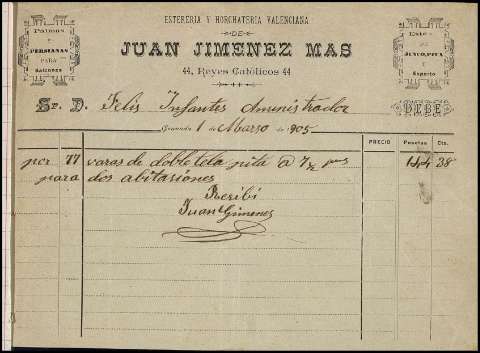 ESTERERÍA Y HORCHATERÍA VALENCIANA
DE
JUAN JIMENEZ MAS
44, Reyes Católicos 44
Palmas
Y
PERSIANAS
PARA
BALCONES
Este
DE
JUNCO, PITA
Y
Esparto
Sr. D. Felis Infantes Aministrador
DEBE
Granada 1 de Marzo de 1905
PRECIO Pesetas Cts.
por 77 varas de doble tela pita a 7½ 144 38
para dos abitasiones
Recibí
Juan Gimenez